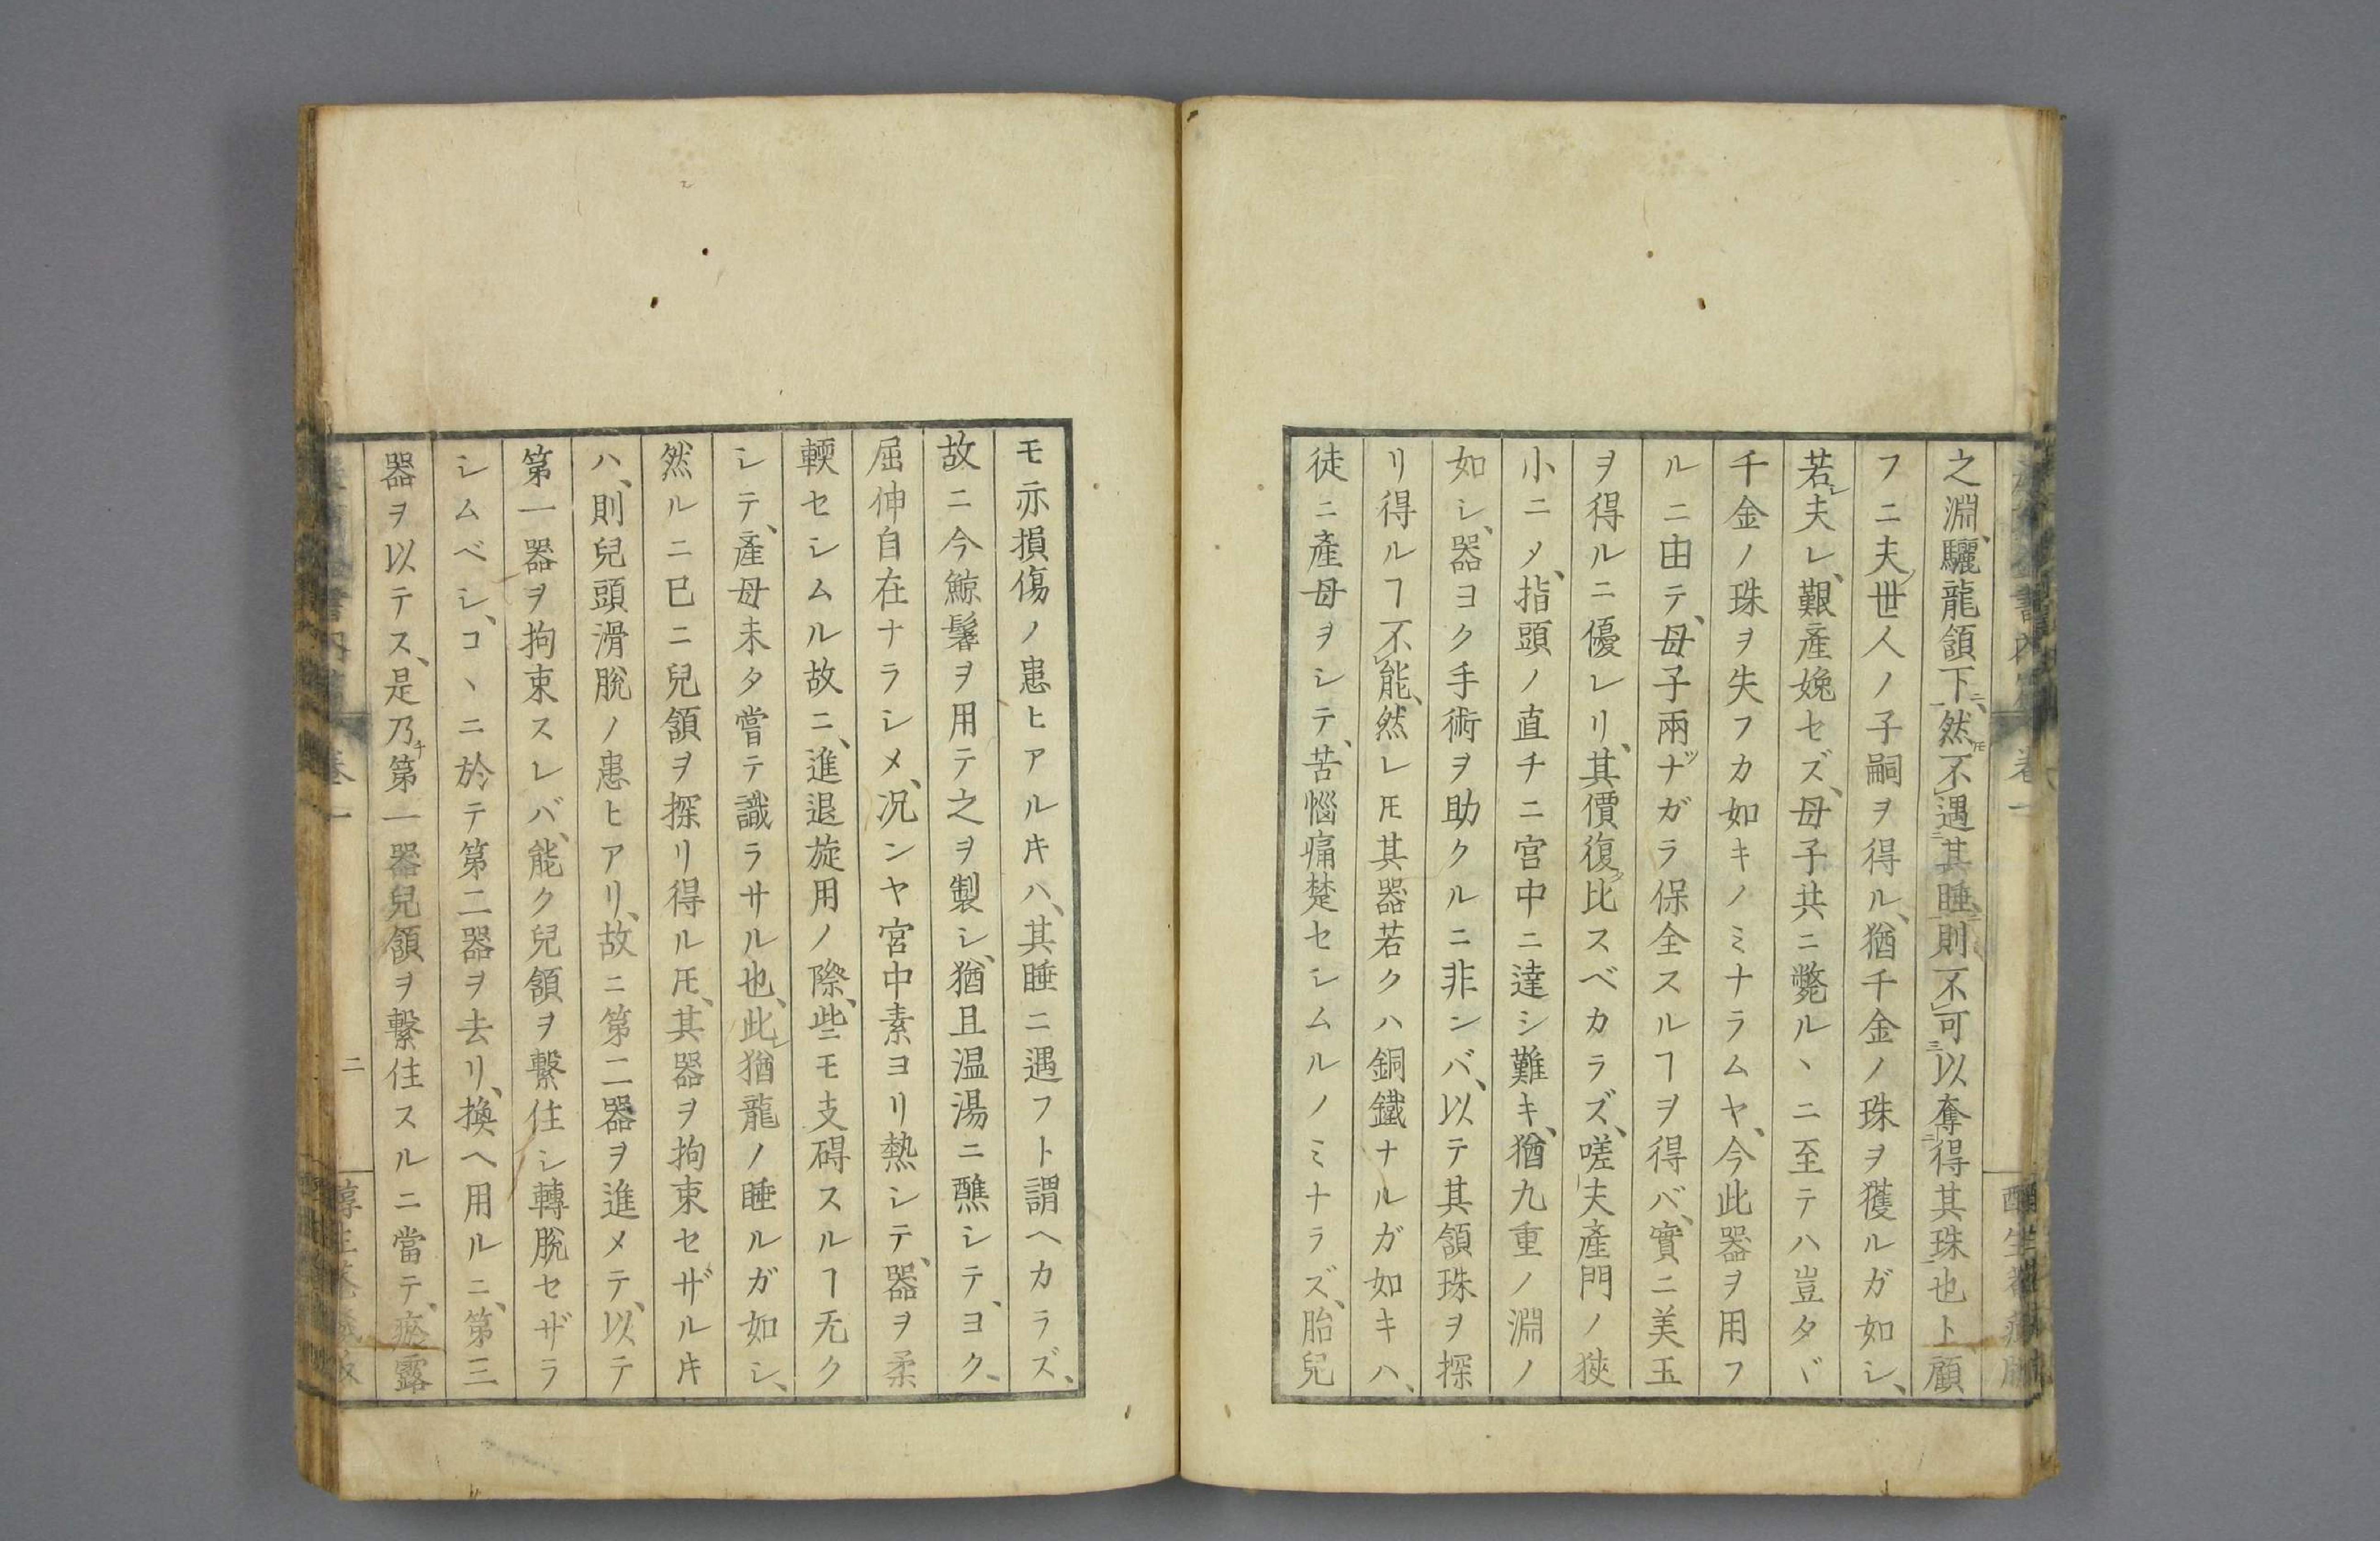 之淵、驪龍頷下、然𪜈不遇其睡、則不可以奪得其珠也ト顧
フニ夫ノ世人ノ子嗣ヲ得ル、猶千金ノ珠ヲ獲ルガ如シ、
若シ夫レ、艱產娩セズ、母子共ニ斃ルヽニ至テハ豈タヾ
千金ノ珠ヲ失フカ如キノミナラムヤ、今此器ヲ用フ
ルニ由テ、母子兩ツナガラ保全スルヿヲ得バ、實ニ美玉
ヲ得ルニ優レリ、其價復タ比スベカラズ、嗟夫產門ノ狹
小ニメ、指頭ノ直チニ宮中ニ達シ難キ、猶九重ノ淵ノ
如シ、器ヨク手術ヲ助クルニ非ンバ、以テ其頷珠ヲ探
リ得ルヿ不能、然レ𪜈其器若クハ銅鐵ナルガ如キハ、
徒ニ產母ヲシテ、苦惱痛楚セシムルノミナラズ、胎兒
モ亦損傷ノ患ヒアルキハ、其睡ニ遇フト謂ヘカラズ、
故ニ今鯨鬚ヲ用テ之ヲ製シ、猶且温湯ニ蘸シテ、ヨク、
屈伸自在ナラシメ、况ンヤ宮中素ヨリ熱シテ、器ヲ柔
輭セシムル故ニ、進退旋用ノ際、些ニモ支碍スルヿ无ク
シテ、產母未タ嘗テ識ラサル也、此レ猶龍ノ睡ルガ如シ、
然ルニ已ニ兒頷ヲ探リ得ル𪜈、其器ヲ拘束セザルキ
ハ、則兒頭滑脫ノ患ヒアリ、故ニ第二器ヲ進メテ、以テ
第一器ヲ拘束スレバ、能ク兒頷ヲ繫住シ轉脫セザラ
シムベシ、コヽニ於テ第二器ヲ去リ、換ヘ用ルニ、第三
器ヲ以テス、是乃チ第一器兒頷ヲ繫住スルニ當テ、瘀露
二